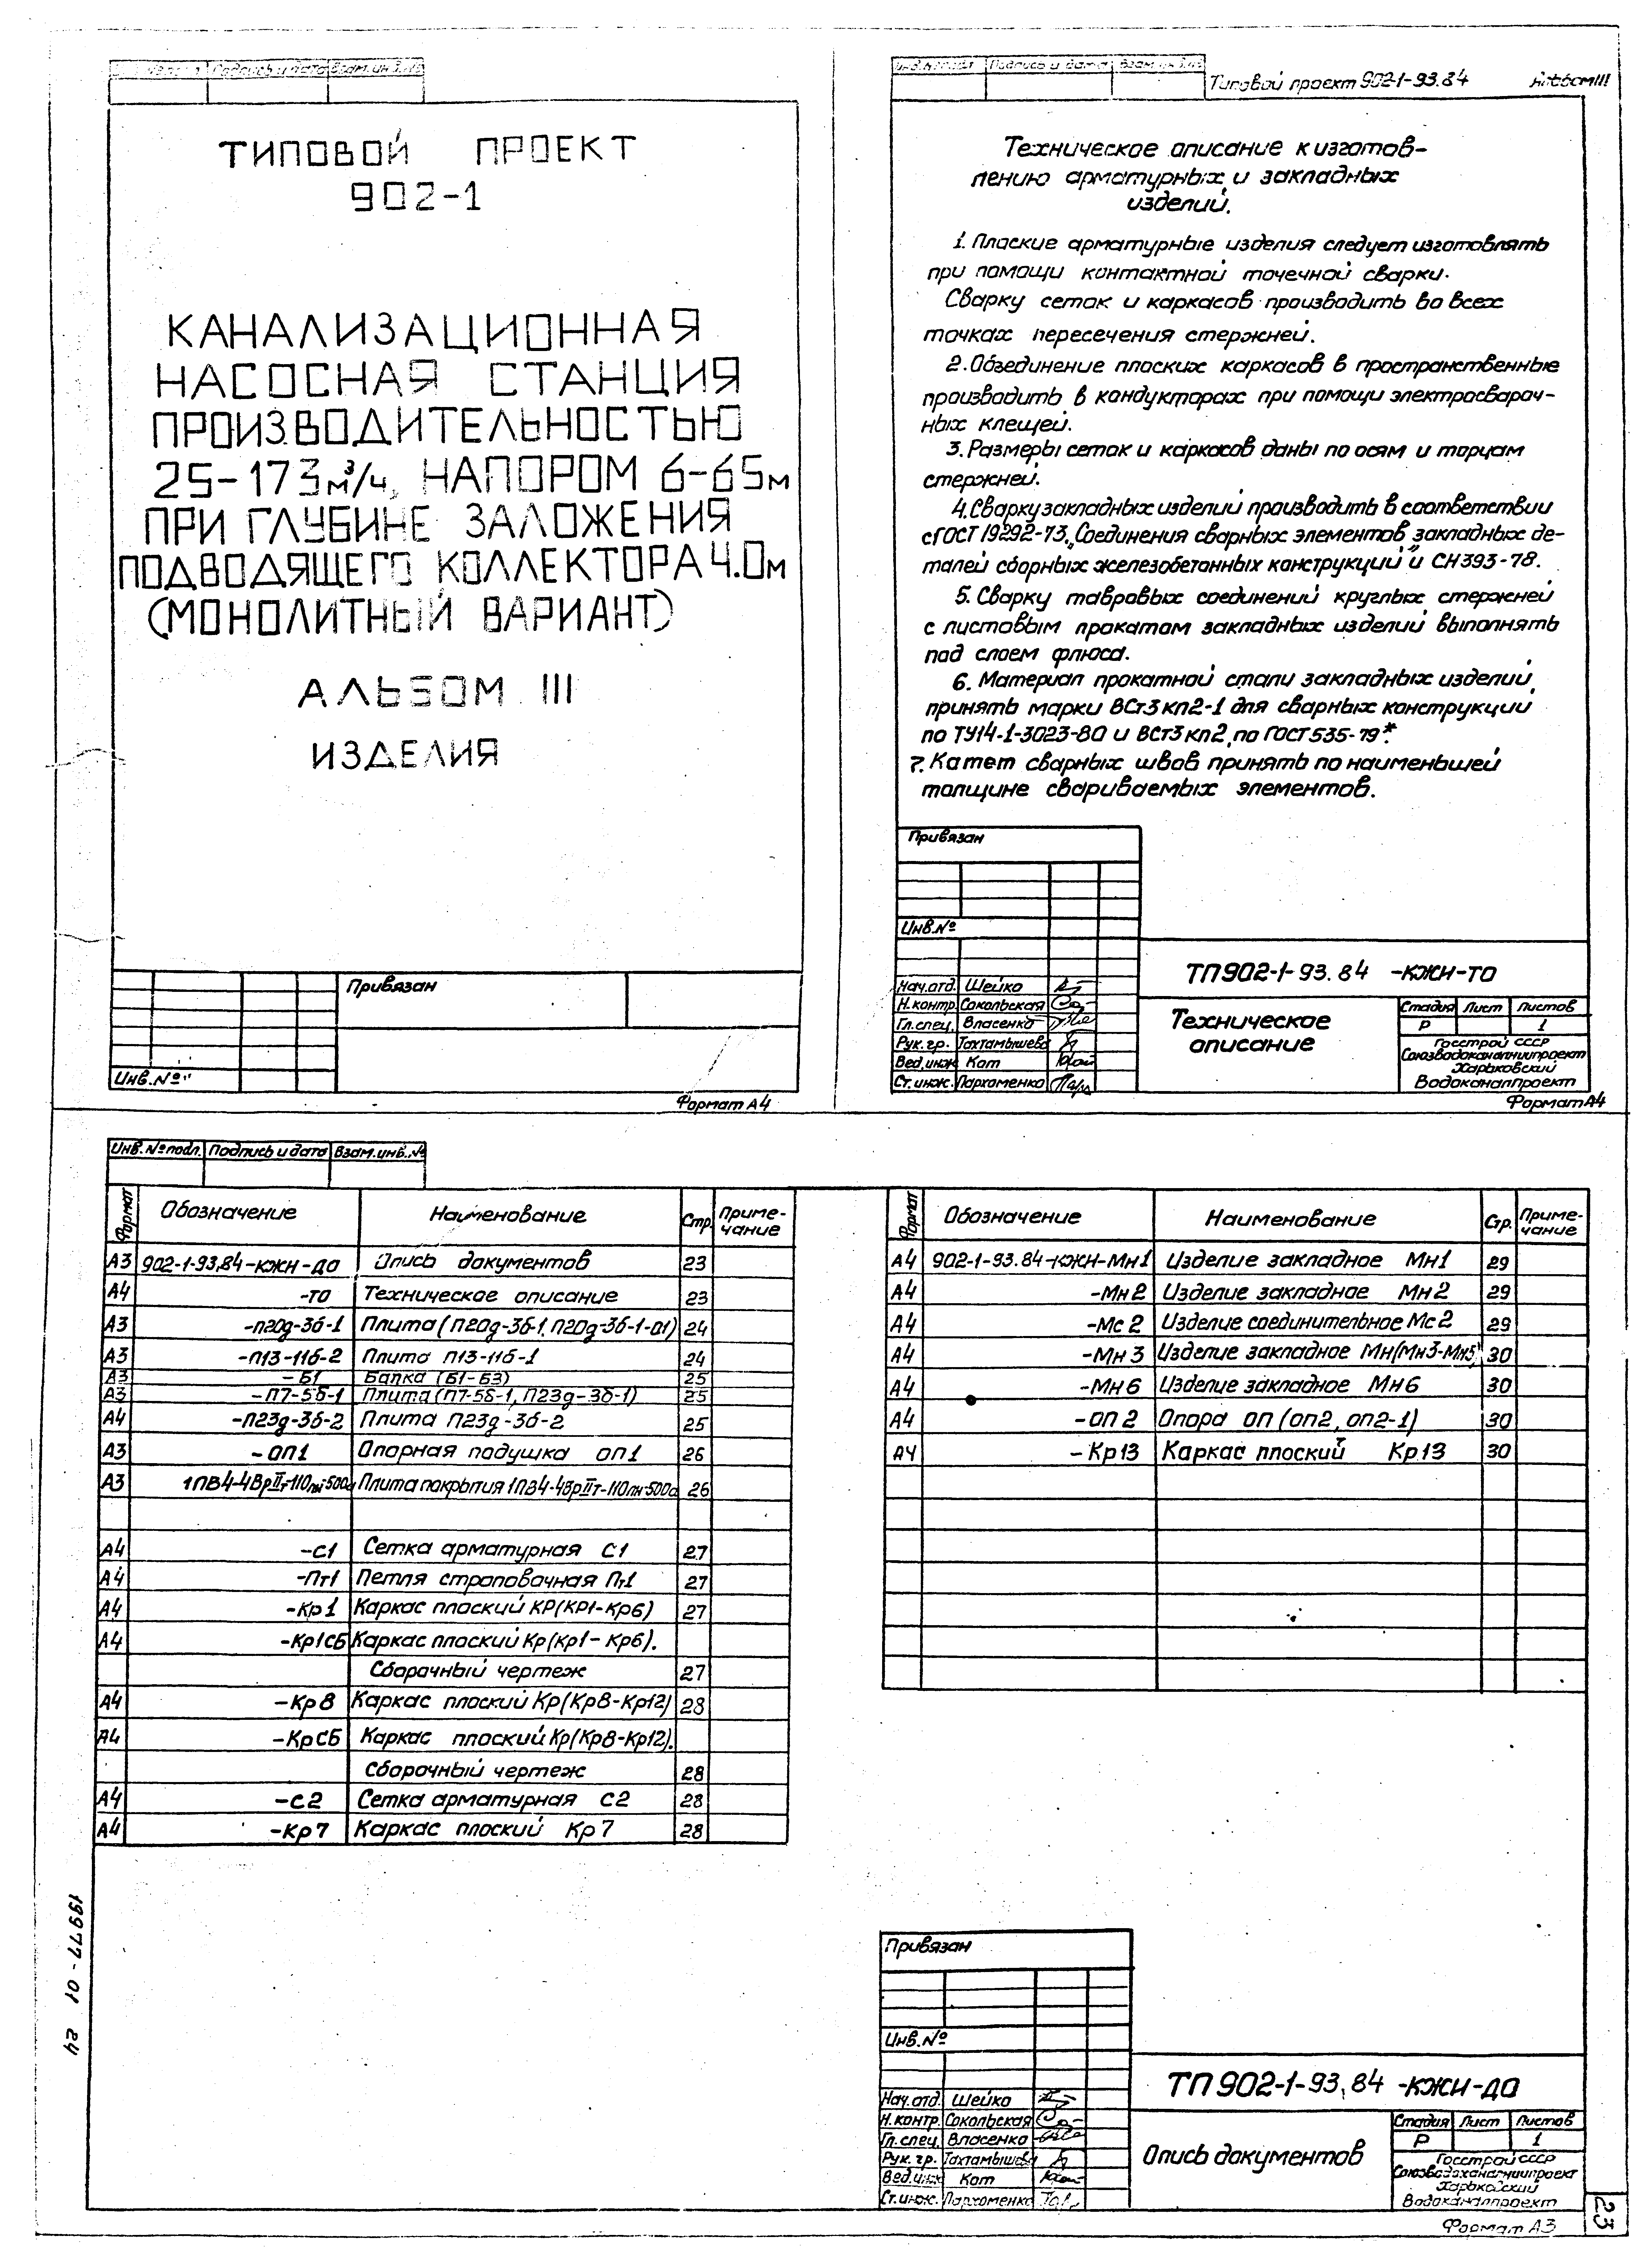 Подпись и дата Взам.инв.№
ТИПОВОЙ ПРОЕКТ
902-1
КАНАЛИЗАЦИОННАЯ
НАСОСНАЯ СТАНЦИЯ
ПРОИЗВОДИТЕЛЬНОСТЬЮ
25-173м³/ч, НАПОРОМ 6-65м
ПРИ ГЛУБИНЕ ЗАЛОЖЕНИЯ
ПОДВОДЯЩЕГО КОЛЛЕКТОРА 4.0м
(МОНОЛИТНЫЙ ВАРИАНТ)
АЛЬБОМ III
ИЗДЕЛИЯ
Привязан
Инв.№
Формат А4
Инв.№ подл. Подпись и дата Взам.инв.№
Типовой проект 902-1-93.84 Альбом III
Техническое описание к изготов-
лению арматурных и закладных
изделий.
1. Плоские арматурные изделия следует изготовлять
при помощи контактной точечной сварки.
Сварку сеток и каркасов производить во всех
точках пересечения стержней.
2. Объединение плоских каркасов в пространственные
производить в кондукторах при помощи электросвароч-
ных клещей.
3. Размеры сеток и каркасов даны по осям и торцам
стержней.
4. Сварку закладных изделий производить в соответствии
с ГОСТ 19292-73 „Соединения сварных элементов закладных де-
талей сборных железобетонных конструкций" и СН 393-78.
5. Сварку тавровых соединений круглых стержней
с листовым прокатом закладных изделий выполнять
под слоем флюса.
6. Материал прокатной стали закладных изделий
принять марки ВСт3кп2-1 для сварных конструкции
по ТУ14-1-3023-80 и ВСт3кп2, по ГОСТ 535-79*.
7. Катет сварных швов принять по наименьшей
толщине свариваемых элементов.
Привязан
Инв.№
ТП902-1-93.84 -КЖИ-ТО
Нач.отд. Шейко
Н.контр. Сокольская
Гл.спец. Власенко
Рук.гр. Тахтамышева
Вед.инж. Кот
Ст.инж. Пархоменко
Техническое
описание
Стадия Лист Листов
Р 1
Госстрой СССР
Союзводоканалниипроект
Харьковский
Водоканалпроект
Формат А4
Инв.№ подл. Подпись и дата Взам.инв.№
Формат Обозначение Наименование Стр. Приме-чание
А3 902-1-93.84-КЖИ-ДО Опись документов 23
А4 -ТО Техническое описание 23
А3 -П20д-3б-1 Плита (П20д-3б-1, П20д-3б-1-01) 24
А3 -П13-11б-2 Плита П13-11б-1 24
А3 -Б1 Балка (Б1-Б3) 25
А3 -П7-5б-1 Плита (П7-5б-1, П23д-3б-1) 25
А4 -П23д-3б-2 Плита П23д-3б-2 25
А3 -ОП1 Опорная подушка ОП1 26
А3 1ПВ4-4ВрIIт-110пн-500а Плита покрытия 1ПВ4-4ВрIIт-110пн-500а 26
А4 -С1 Сетка арматурная С1 27
А4 -Пт1 Петля строповочная Пт1 27
А4 -Кр1 Каркас плоский КР(КР1-Кр6) 27
А4 -Кр1СБ Каркас плоский Кр(Кр1-Кр6).
Сборочный чертеж 27
А4 -Кр8 Каркас плоский Кр(Кр8-Кр12) 28
А4 -КрСБ Каркас плоский Кр(Кр8-Кр12).
Сборочный чертеж 28
А4 -С2 Сетка арматурная С2 28
А4 -Кр7 Каркас плоский Кр7 28
Формат Обозначение Наименование Стр. Приме-чание
А4 902-1-93.84-КЖИ-Мн1 Изделие закладное Мн1 29
А4 -Мн2 Изделие закладное Мн2 29
А4 -Мс2 Изделие соединительное Мс2 29
А4 -Мн3 Изделие закладное Мн(Мн3-Мн5) 30
А4 -Мн6 Изделие закладное Мн6 30
А4 -ОП2 Опора ОП (ОП2, ОП2-1) 30
А4 -Кр13 Каркас плоский Кр13 30
Привязан
Инв.№
ТП902-1-93.84 -КЖИ-ДО
Нач.отд. Шейко
Н.контр. Сокольская
Гл.спец. Власенко
Рук.гр. Тахтамышева
Вед.инж. Кот
Ст.инж. Пархоменко
Опись документов
Стадия Лист Листов
Р 1
Госстрой СССР
Союзводоканалниипроект
Харьковский
Водоканалпроект
Формат А3
23
19977-01 24